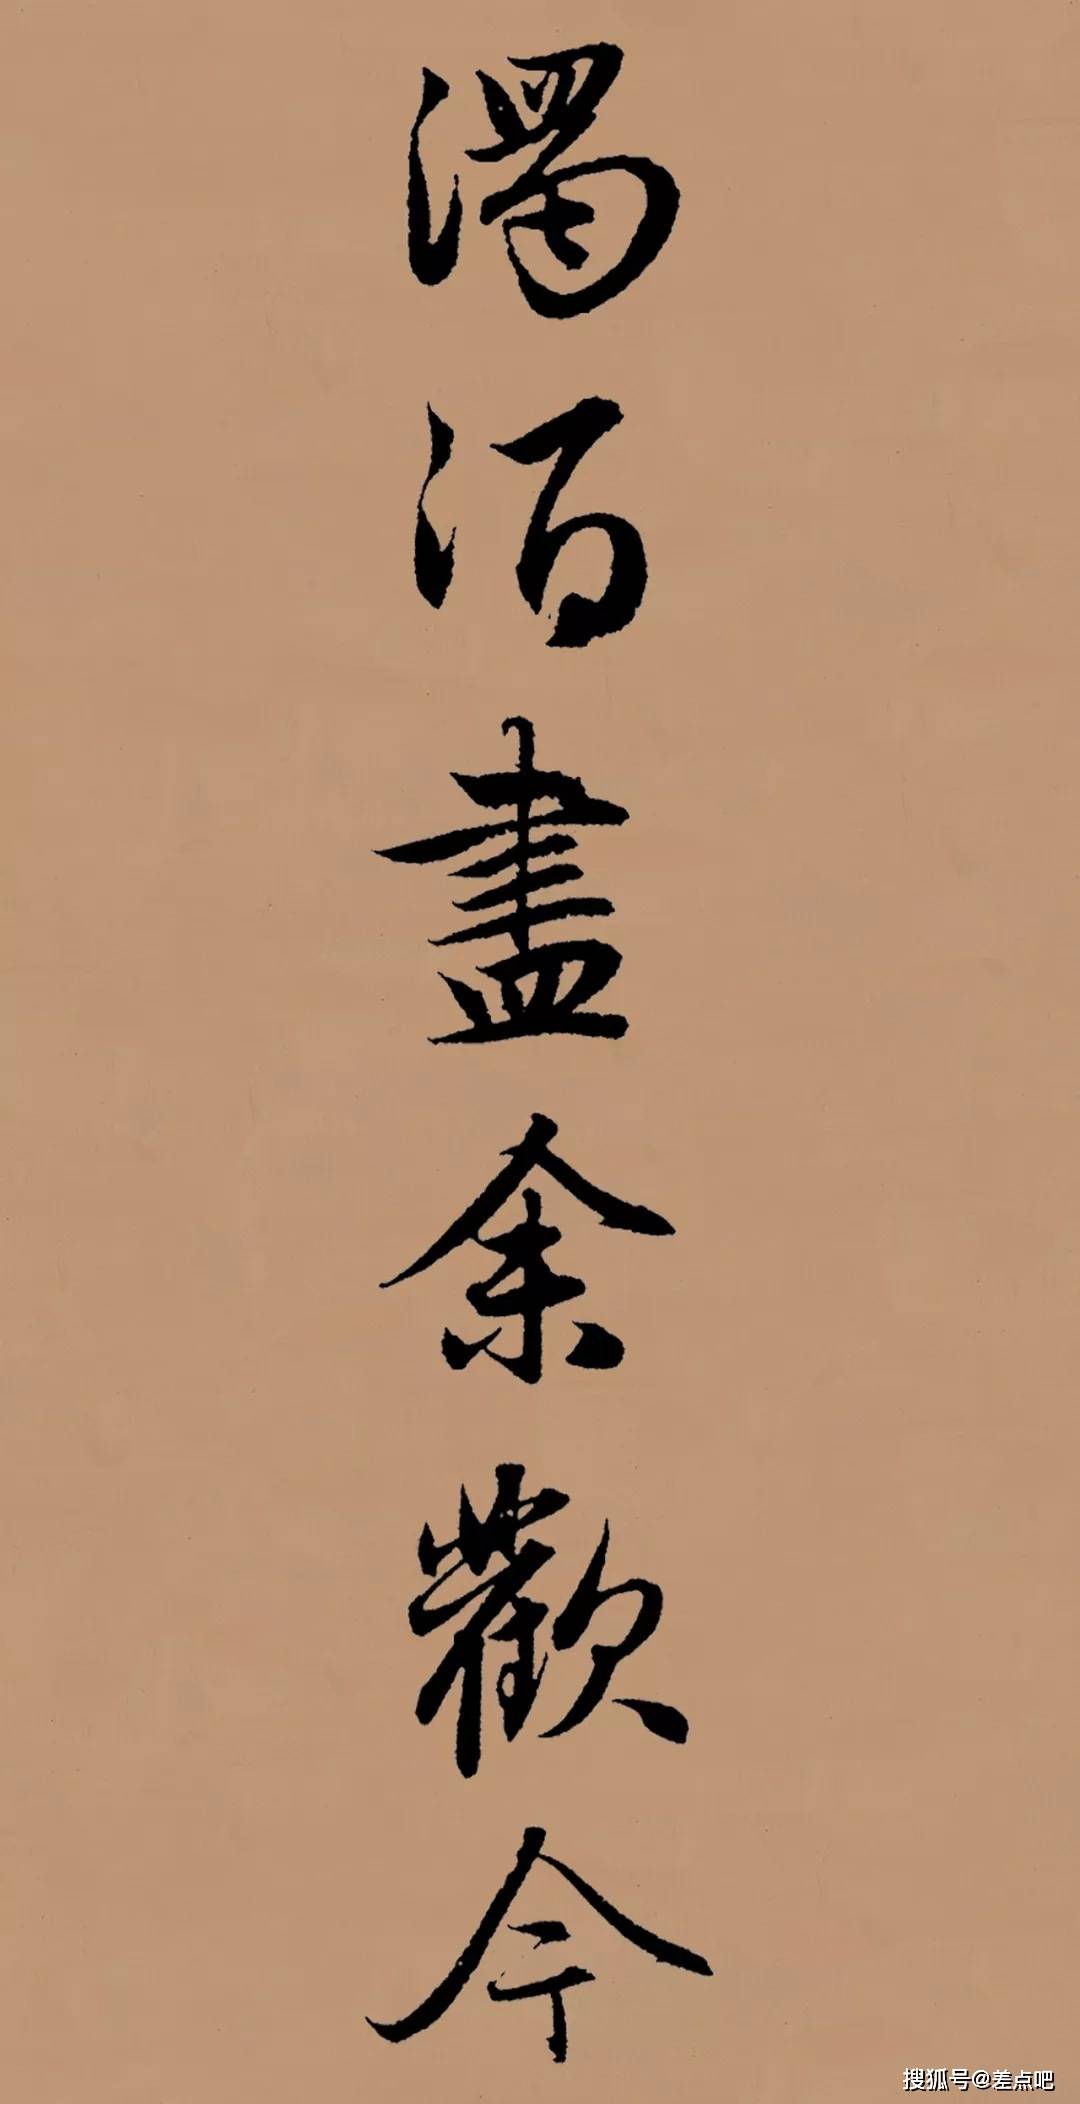 濁酒盡余歡今
搜狐号@差点吧